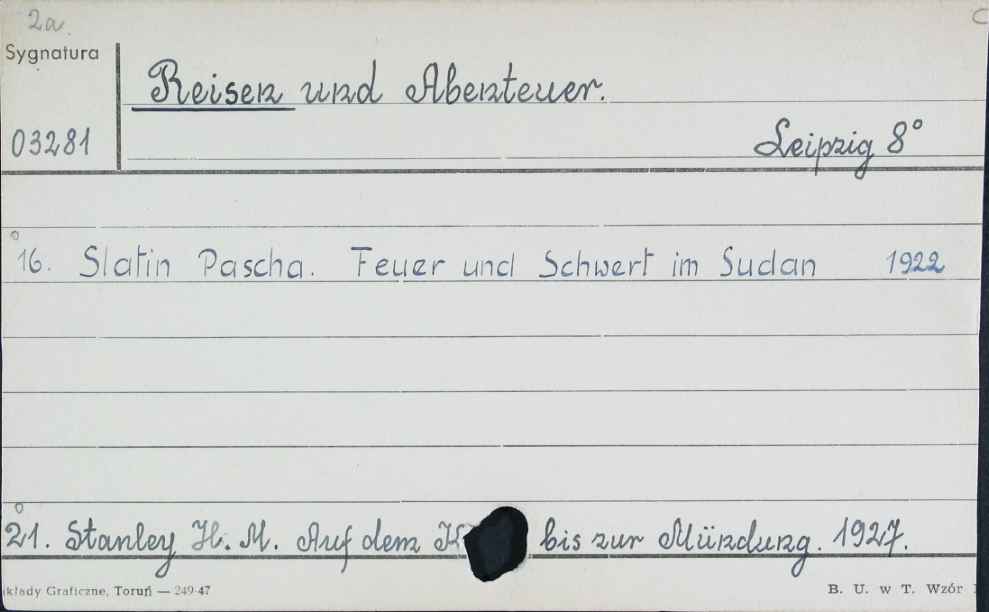 2a.
Sygnatura
Reisen und Abenteuer.
03281
Leipzig 8°
16. Slatin Pascha. Feuer und Schwert im Sudan 1922
21. Stanley H. M. Auf dem bis zur Mündung. 1927.
kłady Graficzne, Toruń — 249-47
B. U. w T. Wzór